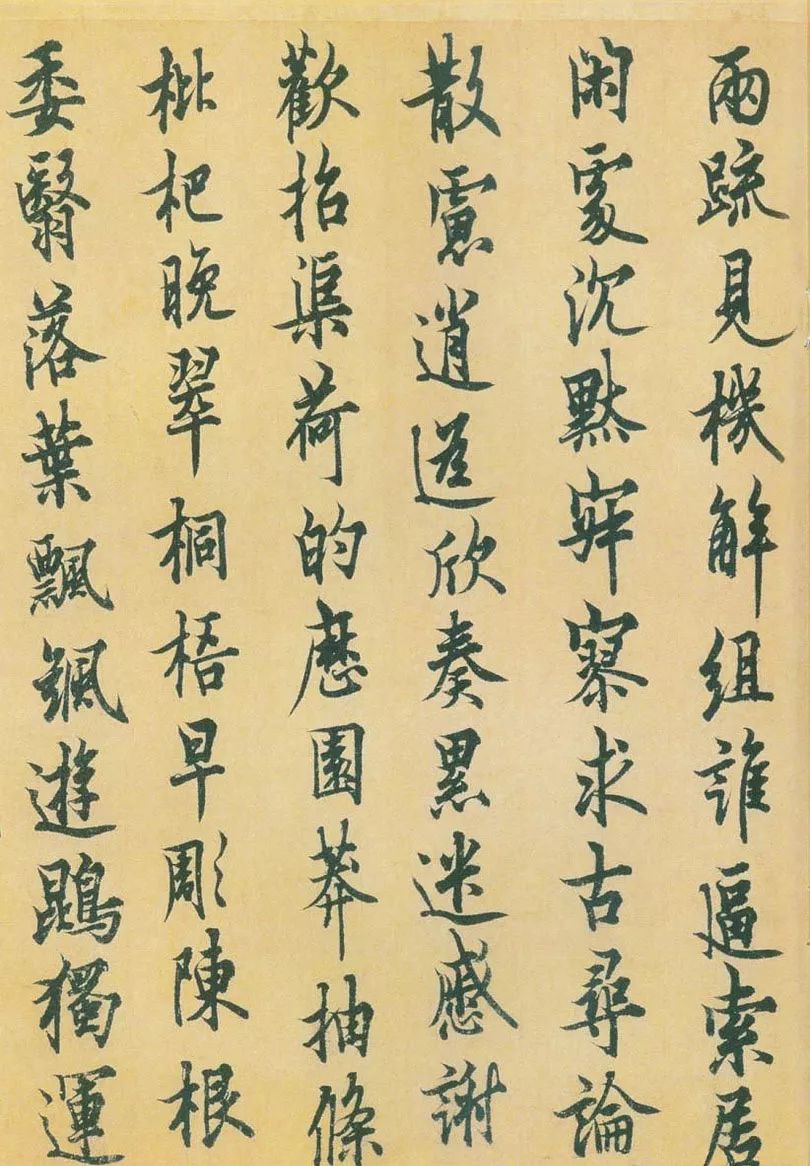 兩疏見機解組誰逼索居
閑處沉默寂寥求古尋論
散慮逍遥欣奏累迷慼謝
歡招渠荷的歷園莽抽條
枇杷晚翠桐梧早彫陳根
委翳落葉飄颻遊鵾獨運